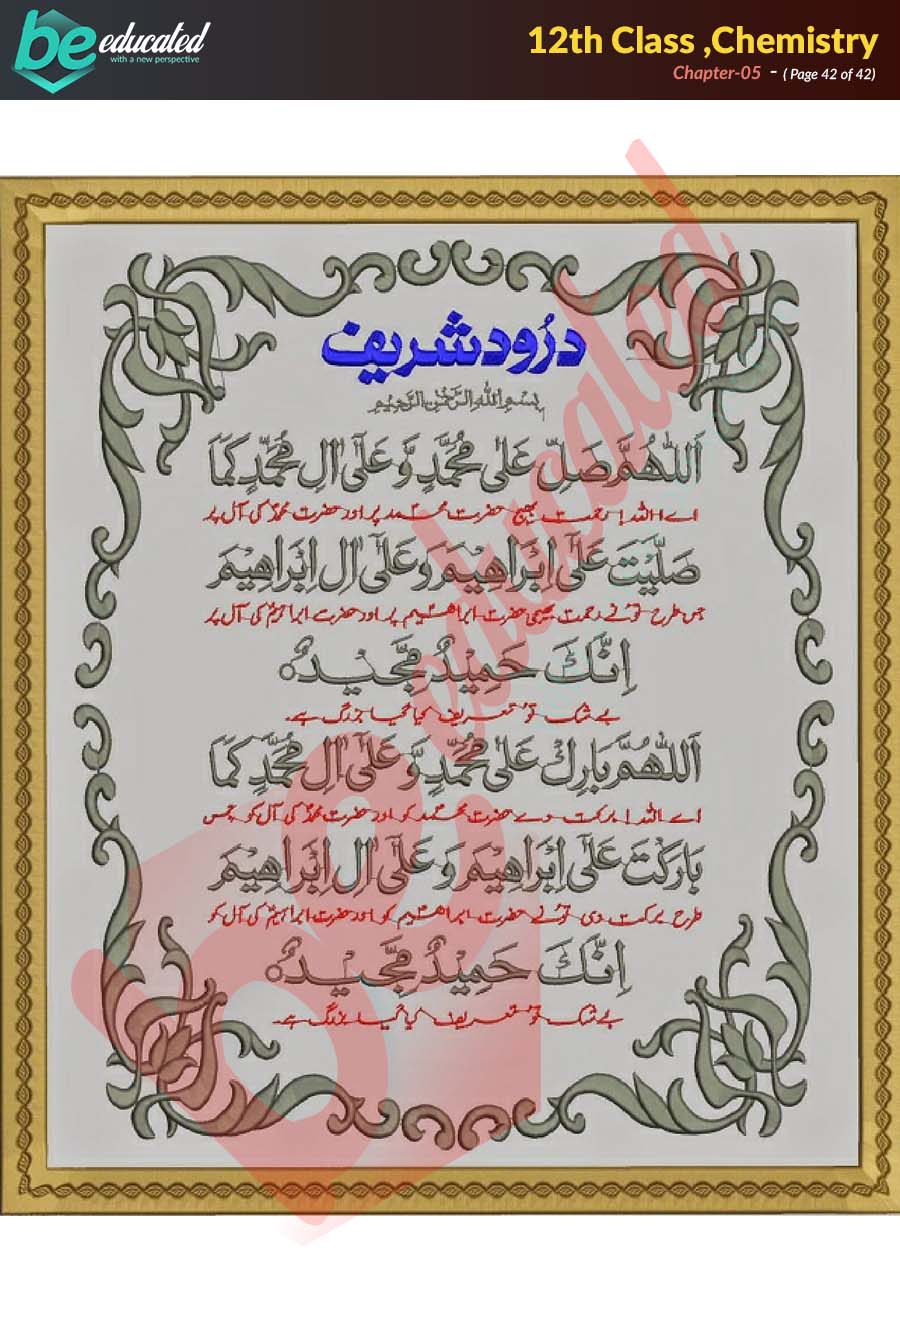 be educated
with a new perspective
12th Class ,Chemistry
Chapter-05 - ( Page 42 of 42)
درُود شریف
بِسْمِ اللهِ الرَّحْمٰنِ الرَّحِيْمِ
اَللّٰهُمَّ صَلِّ عَلٰى مُحَمَّدٍ وَّ عَلٰٓى اٰلِ مُحَمَّدٍ كَمَا
اے اللہ! رحمت بھیج حضرت محمد پر اور حضرت محمدؐ کی آل پر
صَلَّيْتَ عَلٰٓى اِبْرَاهِيْمَ وَ عَلٰٓى اٰلِ اِبْرَاهِيْمَ
جس طرح توُ نے رحمت بھیجی حضرت ابراھیم پر اور حضرت ابراہیمؑ کی آل پر
اِنَّكَ حَمِيْدٌ مَّجِيْدٌ ہ
بے شک توُ تعریف کیا گیا بزرگ ہے۔
اَللّٰهُمَّ بَارِكْ عَلٰى مُحَمَّدٍ وَّ عَلٰٓى اٰلِ مُحَمَّدٍ كَمَا
اے اللہ! برکت دے حضرت محمد کو اور حضرت محمدؐ کی آل کو جس
بَارَكْتَ عَلٰٓى اِبْرَاهِيْمَ وَ عَلٰٓى اٰلِ اِبْرَاهِيْمَ
طرح برکت دی توُ نے حضرت ابراھیم کو اور حضرت ابراہیمؑ کی آل کو
اِنَّكَ حَمِيْدٌ مَّجِيْدٌ ہ
بے شک توُ تعریف کیا گیا بزرگ ہے۔
be educated